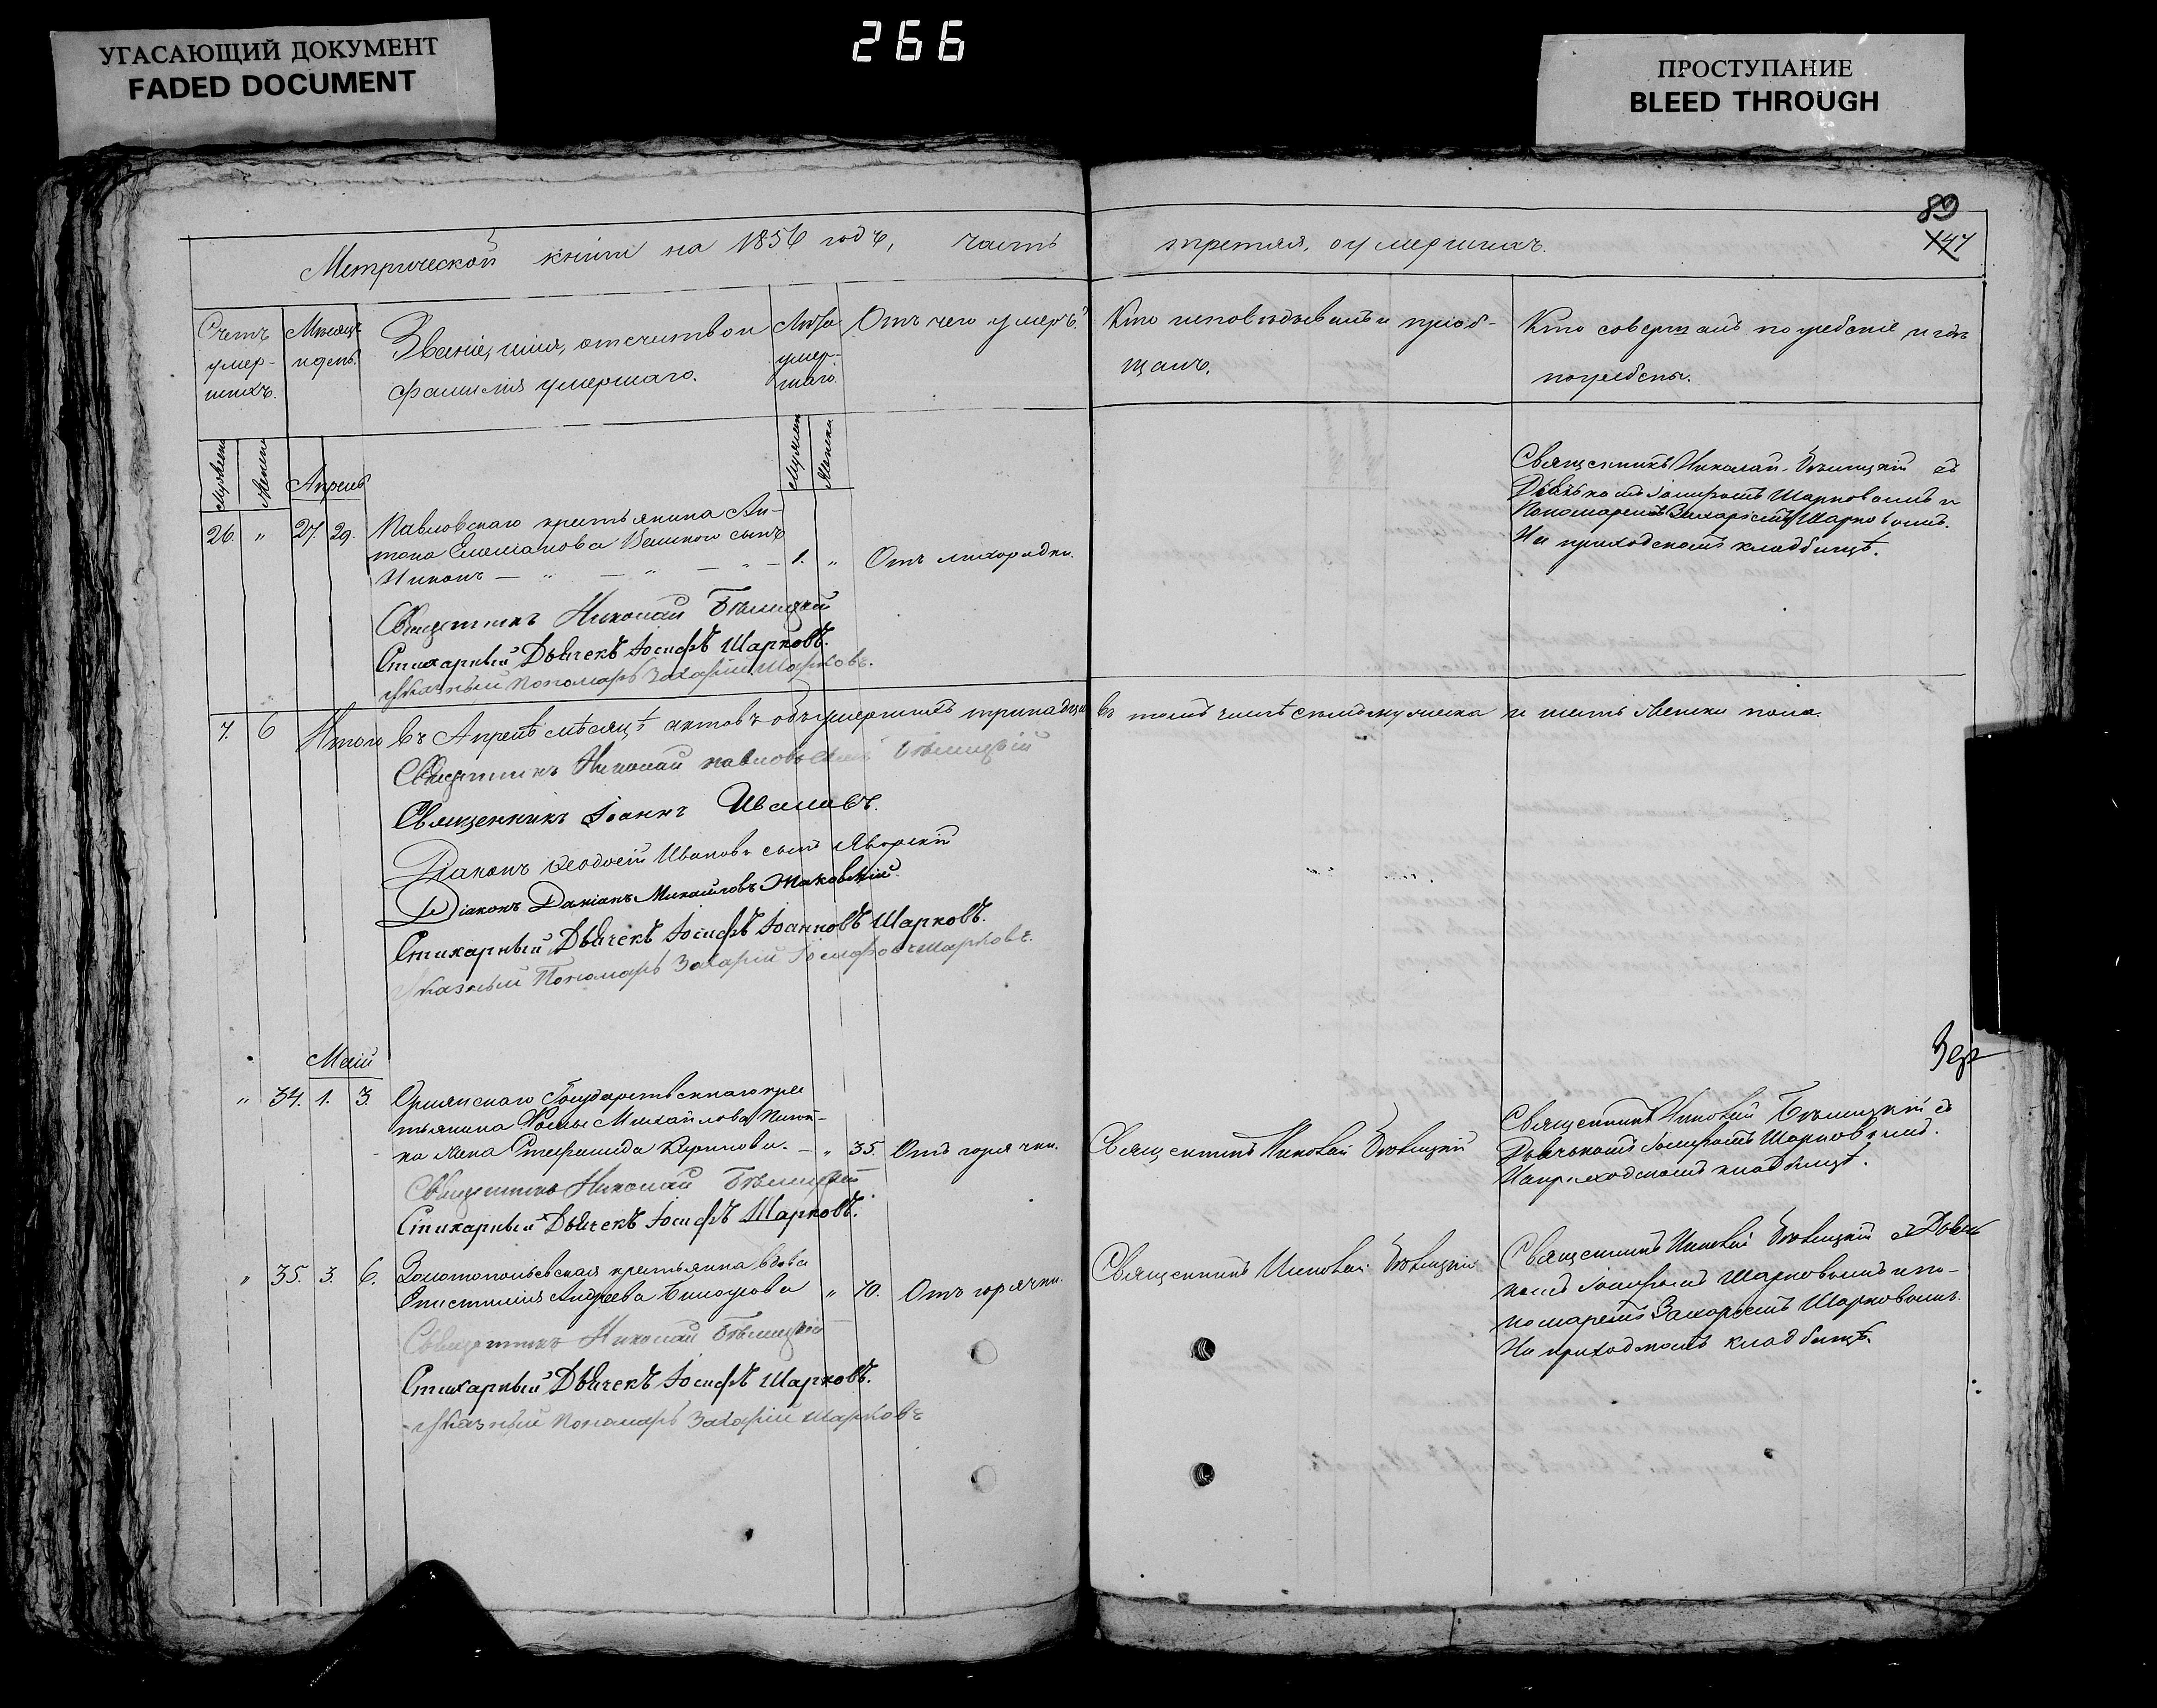 266
УГАСАЮЩИЙ ДОКУМЕНТ
FADED DOCUMENT
ПРОСТУПАНИЕ
BLEED THROUGH
89
147
Метрической книги на 1856 годъ, часть третяя, о умершихъ.
Счетъ умер-шихъ.
Мѣсяцъ и день.
Званіе, имя, отечество и фамилія умершаго.
Лѣта умер-шаго.
Отъ чего умеръ.
Кто исповѣдывалъ и пріоб-щалъ.
Кто совершалъ погребеніе и гдѣ погребены.
Апрель
26. " 27. 29. Павловскаго крестьянина Ан-
тона Емелианова сынъ
Никонъ — " — " — " — 1. " Отъ лихорадки.
Священникъ Николай Бѣлицкій съ
Дьячкомъ Іосифомъ Шарковымъ и
Пономаремъ Захаріемъ Шарковымъ.
На приходскомъ кладбищѣ.
Священникъ Николай Бѣлицкій
Стихарный Дьячекъ Іосифъ Шарковъ.
Указный Пономарь Захарій Шарковъ.
7. 6 Итого въ Апрелѣ мѣсяцѣ актовъ объ умершихъ тринадцать въ томъ числѣ семь мужеска и шесть женска пола.
Священникъ Николай Бѣлицкій
Священникъ Іоаннъ Ивановъ.
Діаконъ Ѳеодосій Ивановъ сынъ Яворскій
Діаконъ Даміанъ Михайловъ
Стихарный Дьячекъ Іосифъ Іоанновъ Шарковъ.
Указный Пономарь Захарій Іосифовъ Шарковъ.
Маій
" 34. 1. 3. Государственнаго кре
стьянина Ѳомы Михайлова
ка жена Стефанида Карпова. — " 35. Отъ горячки.
Священникъ Николай Бѣлицкій
Священникъ Николай Бѣлицкій съ
Дьячкомъ Іосифомъ Шарковымъ.
На приходскомъ кладбищѣ.
Священникъ Николай Бѣлицкій
Стихарный Дьячекъ Іосифъ Шарковъ.
" 35. 3. 6. Золотопольевская крестьянка вдова
Андреева " 70. Отъ горячки.
Священникъ Николай Бѣлицкій
Священникъ Николай Бѣлицкій съ Дьяч
комъ Іосифомъ Шарковымъ и по-
номаремъ Захаріемъ Шарковымъ.
На приходскомъ кладбищѣ.
Священникъ Николай Бѣлицкій
Стихарный Дьячекъ Іосифъ Шарковъ.
Указный Пономарь Захарій Шарковъ